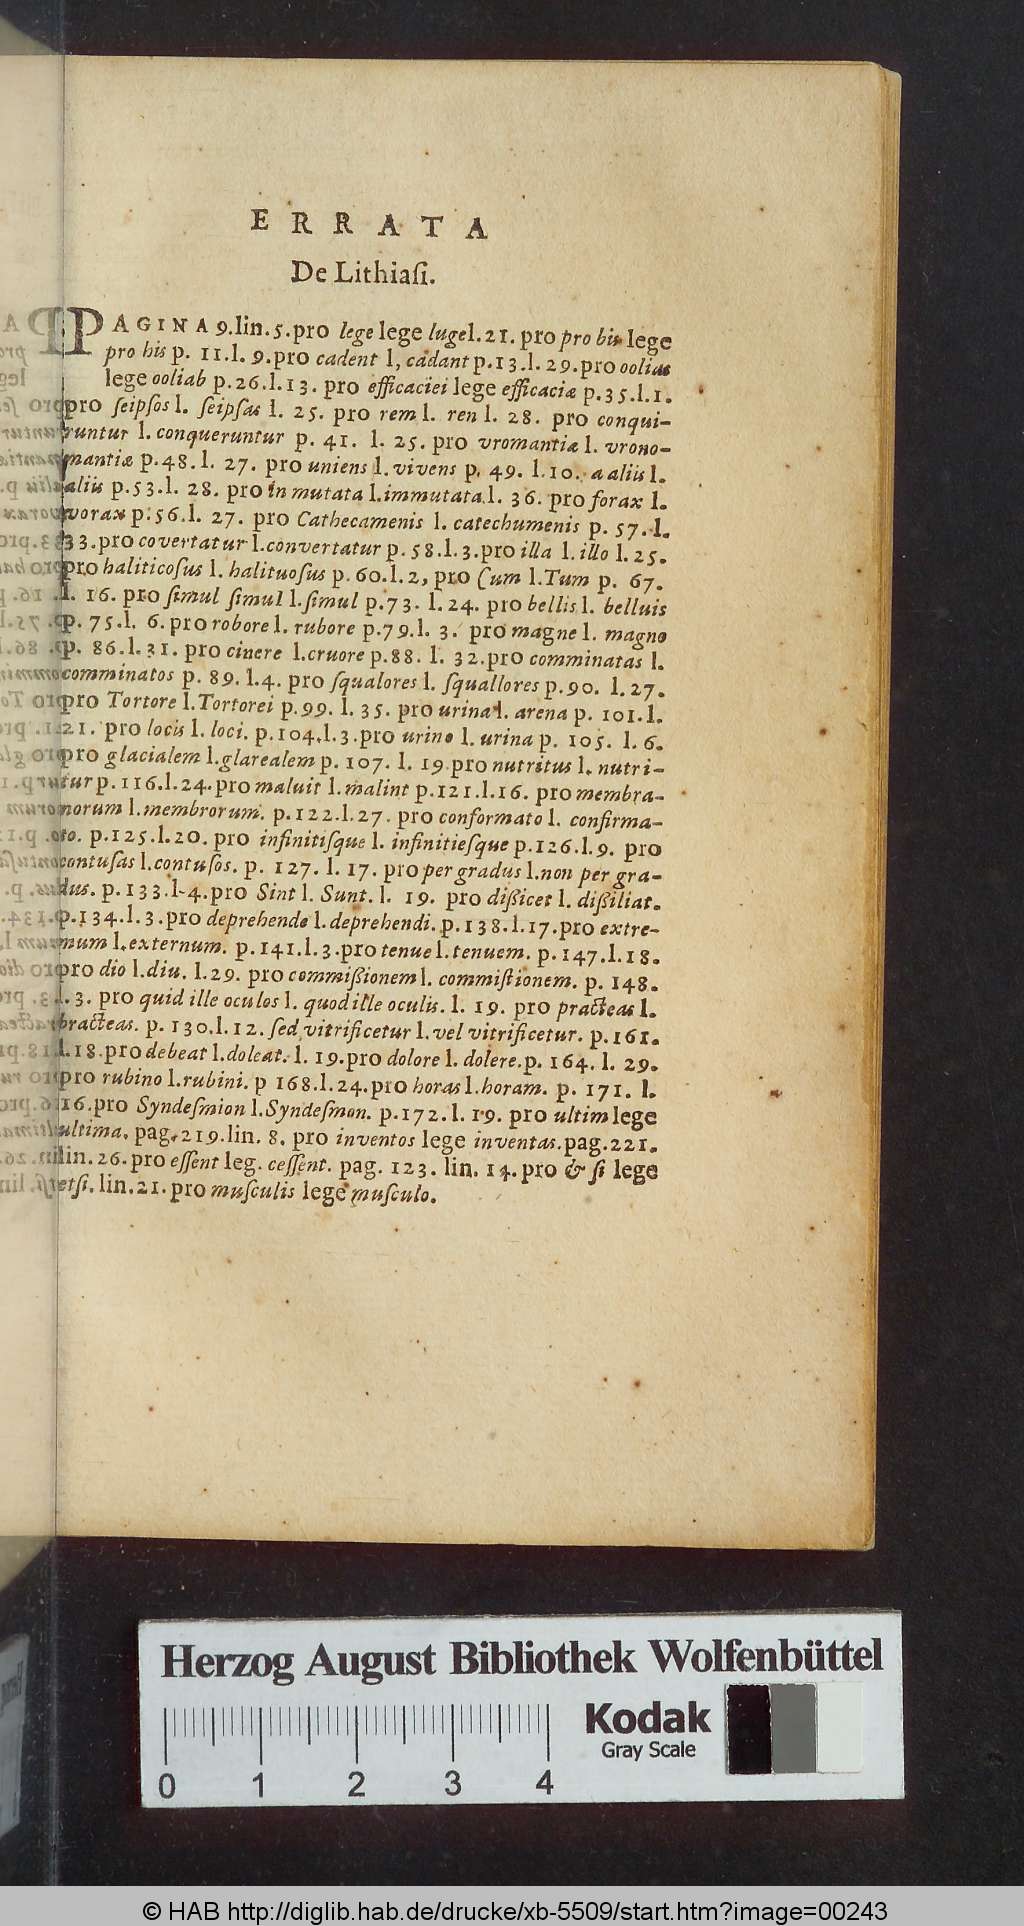 ERRATA
De Lithiaſi.
PAGINA 9.lin.5.pro lege lege luge l.21. pro pro bis lege
pro his p. 11.l.9.pro cadent l, cadant p.13.l.29.pro oolias
lege ooliab p.26.l.13. pro efficaciei lege efficaciæ p.35.l.1.
pro ſeipſos l. ſeipſas l. 25. pro rem l. ren l. 28. pro conqui-
runtur l.conqueruntur p. 41. l. 25. pro vromantiæ l. vrono-
mantiæ p.48.l. 27. pro uniens l.vivens p. 49. l.10. a aliis l.
aliis p.53.l. 28. pro in mutata l.immutata l. 36. pro forax l.
vorax p.56.l. 27. pro Cathecamenis l. catechumenis p. 57.l.
33.pro covertatur l.convertatur p.58.l.3.pro illa l.illo l.25.
pro haliticoſus l. halituoſus p.60.l.2, pro Cum l.Tum p. 67.
l. 16. pro ſimul ſimul l.ſimul p.73. l.24. pro bellis l. belluis
p. 75.l. 6.pro robore l. rubore p.79.l. 3. pro magne l. magno
p. 86.l.31. pro cinere l.cruore p.88. l. 32.pro comminatas l.
comminatos p. 89. l.4. pro ſqualores l. ſquallores p.90. l.27.
pro Tortore l.Tortorei p.99. l. 35. pro urina l. arena p. 101.l.
21. pro locis l. loci. p.104.l.3.pro urine l. urina p. 105. l. 6.
pro glacialem l.glarealem p. 107. l. 19.pro nutritus l. nutri-
tur p.116.l.24.pro maluit l.malint p.121.l.16. pro membra-
norum l.membrorum. p.122.l.27. pro conformato l. confirma-
to. p.125.l.20. pro infinitiſque l. infinitieſque p.126.l.9. pro
contuſas l.contuſos. p. 127. l. 17. pro per gradus l.non per gra-
dus. p.133.l.4.pro Sint l. Sunt. l. 19. pro dißicet l. dißiliat.
p.134.l.3.pro deprehende l.deprehendi. p.138.l.17.pro extre-
mum l.externum. p.141.l.3.pro tenue l.tenuem. p.147.l.18.
pro dio l.diu. l.29. pro commißionem l. commiſtionem. p. 148.
l.3. pro quid ille oculos l. quod ille oculis. l. 19. pro practeas l.
bracteas. p. 130.l.12. ſed vitrificetur l.vel vitrificetur. p.161.
l.18.pro debeat l.doleat. l. 19.pro dolore l. dolere.p. 164. l. 29.
pro rubino l.rubini. p 168.l.24.pro horas l.horam. p. 171. l.
16.pro Syndeſmion l.Syndeſmon. p.172.l.19. pro ultim lege
ultima. pag.219.lin. 8. pro inventos lege inventas.pag.221.
lin.26.pro eſſent leg. ceſſent. pag. 123. lin. 14. pro & ſi lege
etſi.lin.21.pro muſculis lege muſculo.
Herzog August Bibliothek Wolfenbüttel
Kodak
Gray Scale
0 1 2 3 4
© HAB http://diglib.hab.de/drucke/xb-5509/start.htm?image=00243